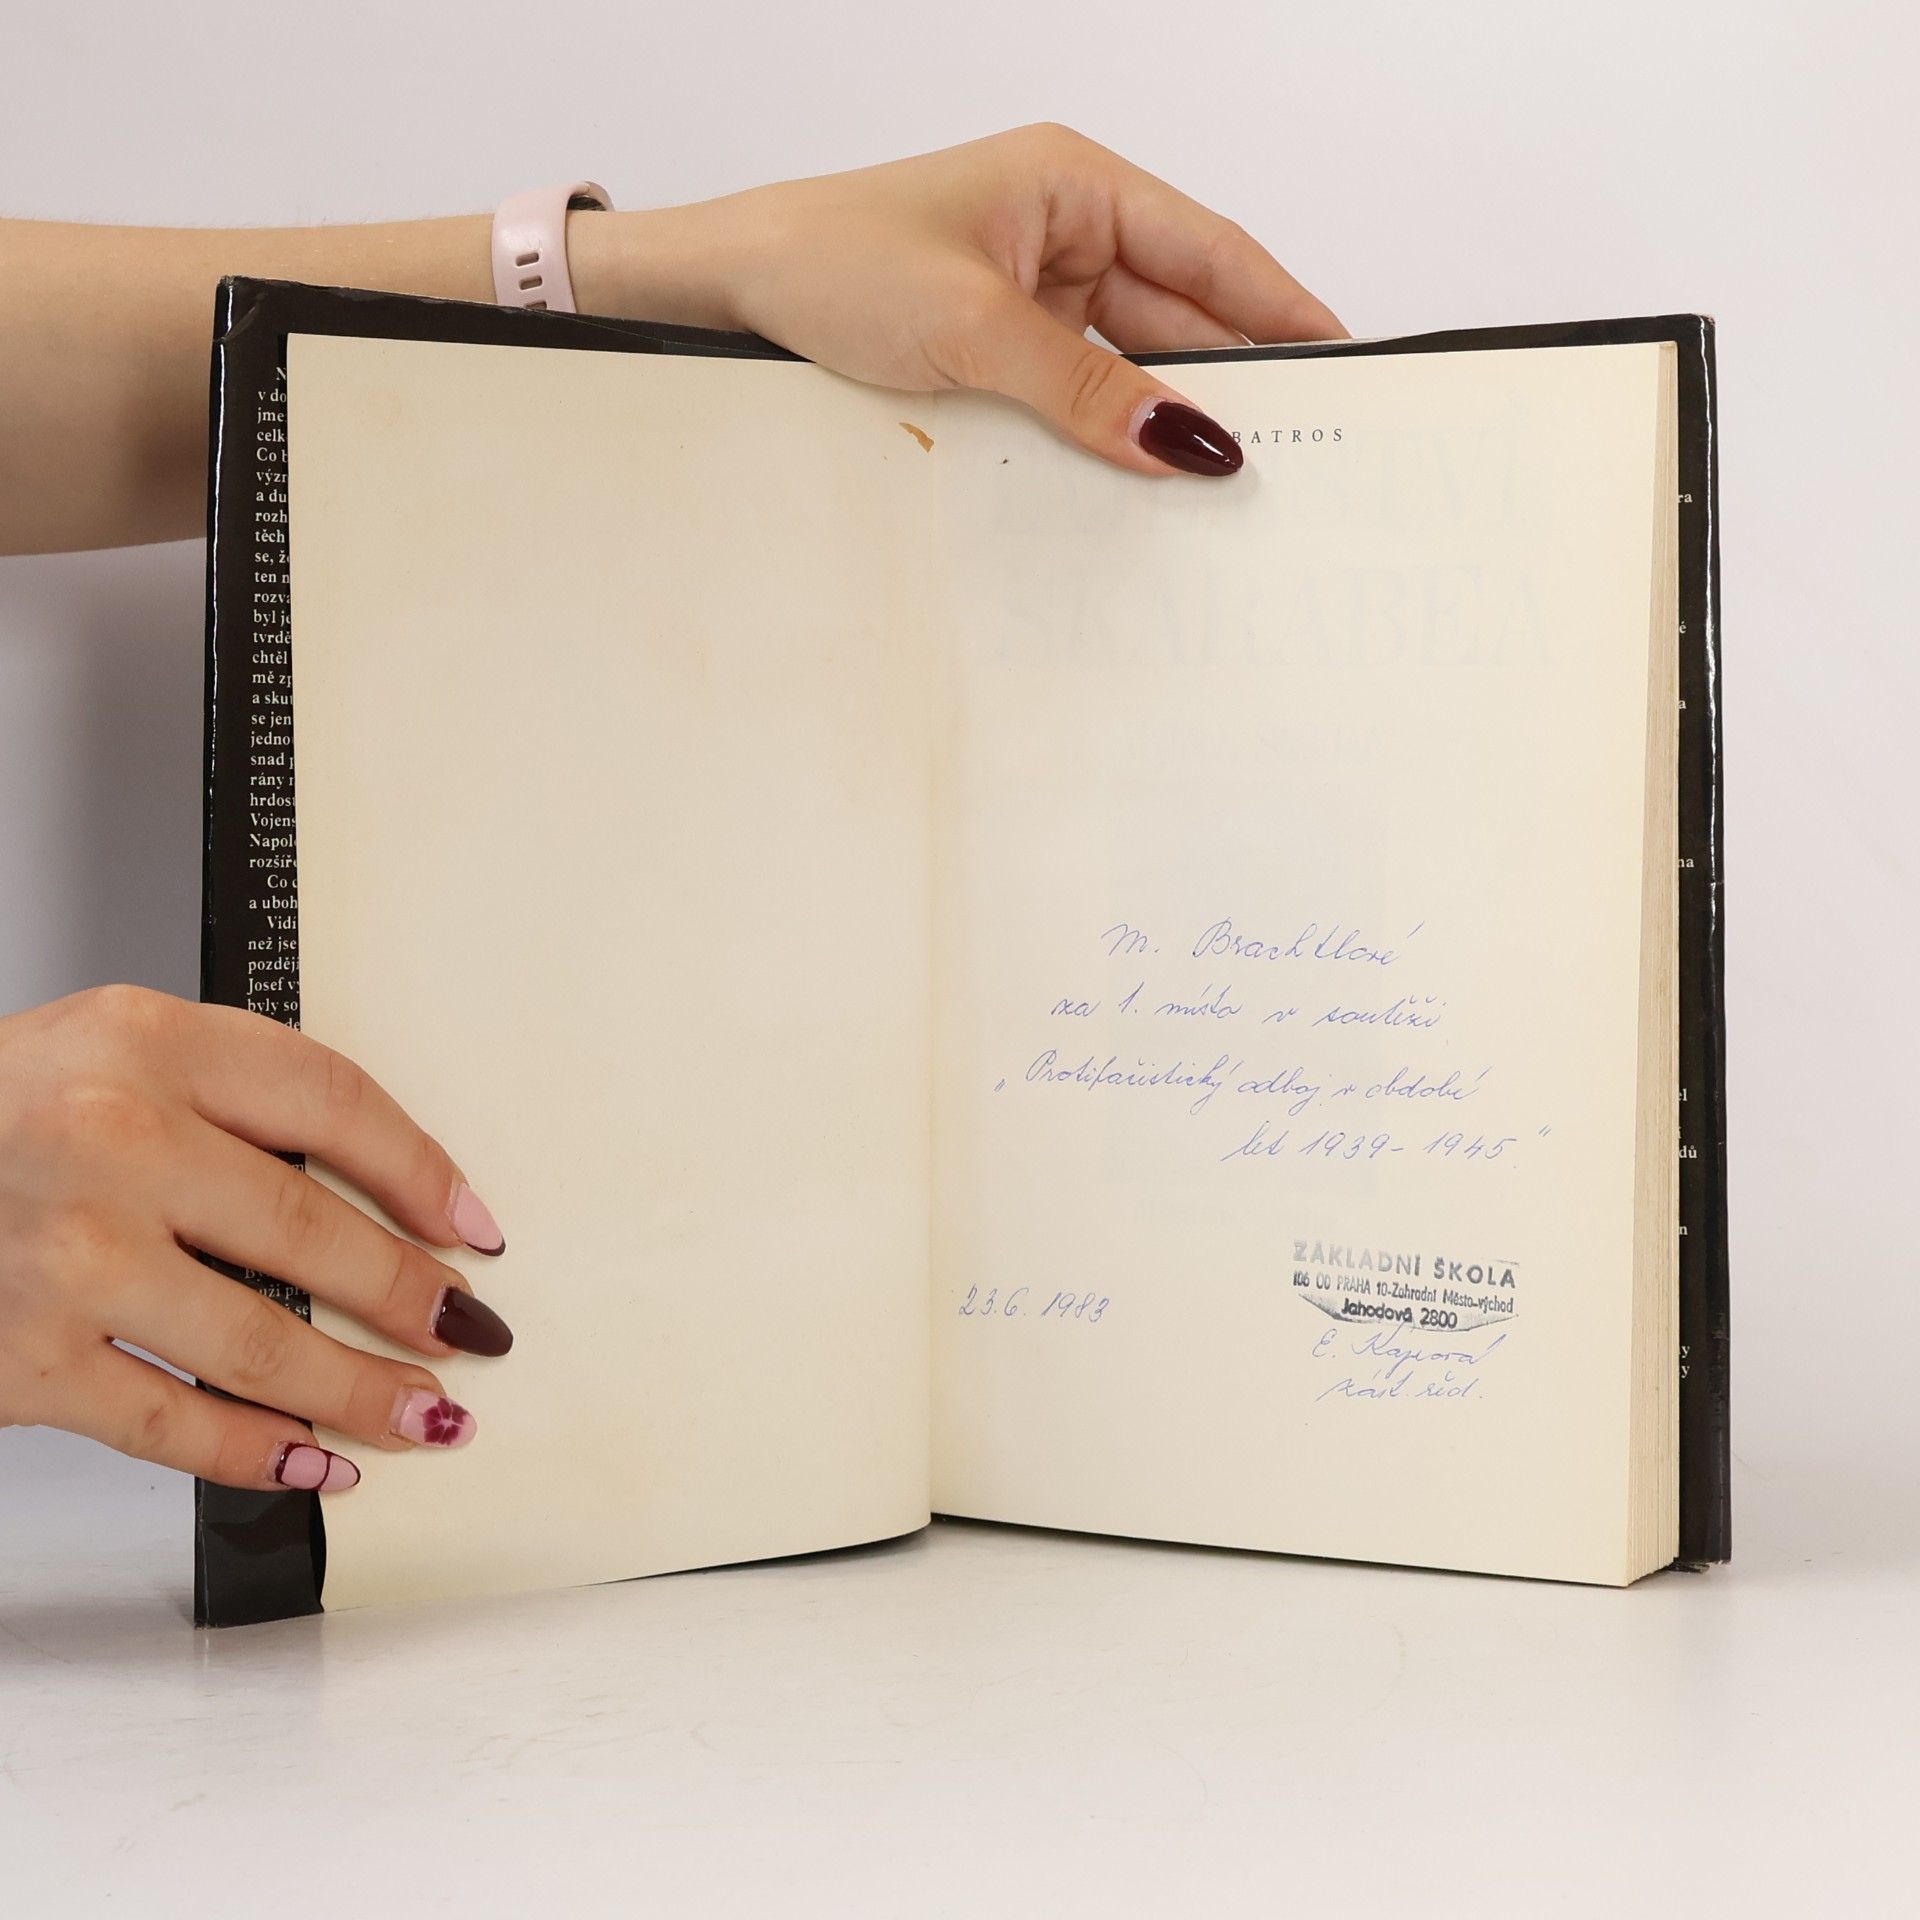 N
v do
jme
celk
Co b
význ
a du
rozh
těch
se, že
ten n
rozva
byl je
tvrdě
chtěl
mě zp
a skut
se jen
jedno
snad p
rány n
hrdost
Vojens
Napole
rozšíře
Co
a uboh
Vidí
než jse
pozděj
Josef vy
byly so
BATROS
SKARABEA
M. Brachtlové
za 1. místo v soutěži
„Protifašistický odboj v období
let 1939-1945."
23.6. 1983
ZÁKLADNÍ ŠKOLA
106 00 PRAHA 10-Zahradní Město-východ
Jahodová 2800
zást. řed.